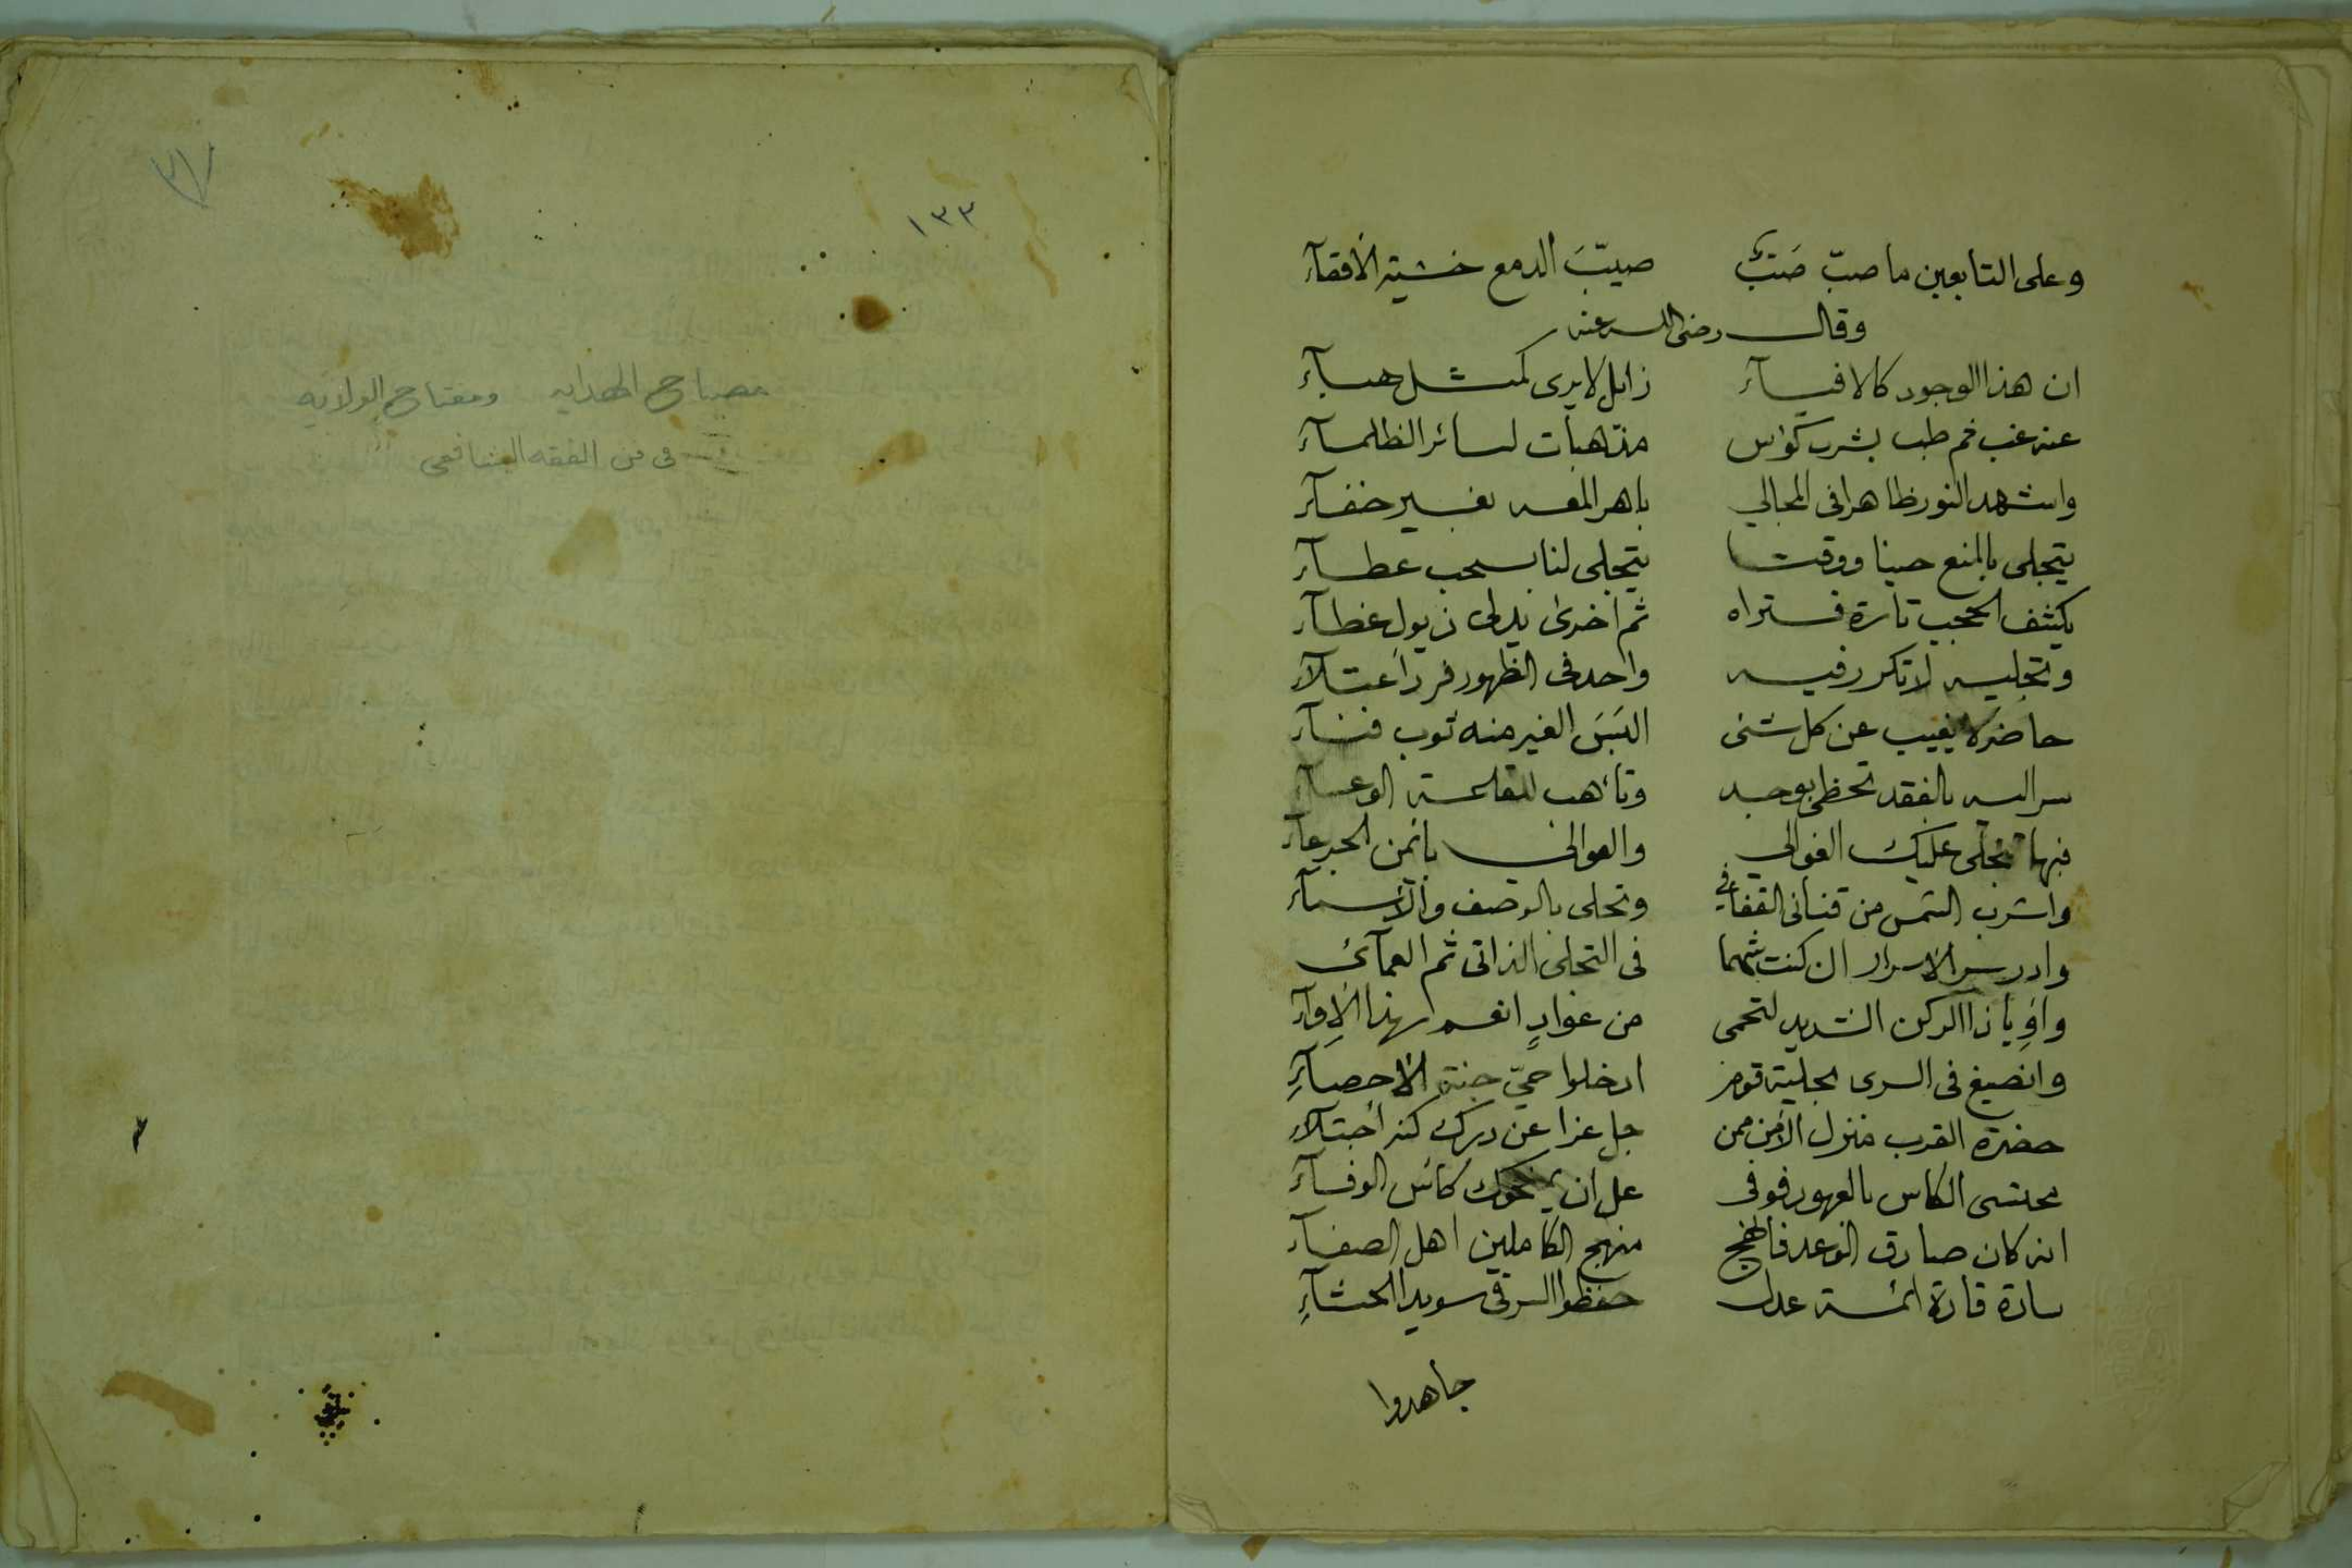 وعلى التابعين ما صبّ صَبٌّ صيّبَ الدمع خشية الافقآء
وقال رضى الله عنه
ان هذا الوجود كالافيآء زايل لا يرى كمثل هبآء
عنه غب ثم طب بشرب كؤس مذهبات لسائر الظلمآء
واشهد النور ظاهرا فى المجالي باهر المعه بغير خفآء
يتجلى بالمنع حينا ووقتا يتجلى لنا بسحب عطآء
يكشف الحجب تارة فتراه ثم اخرى يدلى ذيول غطآء
وتجليه لا تكرر فيه واحد فى الظهور فرد اعتلآء
حاضر لا يغيب عن كل شئى البَسَ الغير منه ثوب فنآء
سر اليه بالفقد تحظى بوجد وتأهب للقلعة الوعسآء
فبها تجلى عليك الغوالي والعوالى بايمن الجرعآء
واشرب الشمس من قنانى القفافي وتحلى بالوصف والأسمآء
وادر سر الاسرار ان كنت شهما فى التجلى الذاتى ثم العمآئى
واوِ يا ذا الركن الشديد لتحمى من عوادٍ انعم بهذا الاِوآء
وانصبغ فى السرى بحلية قوم ادخلوا حيّ جنة الاحصآءِ
حضرة القرب منزل الأمن ممن جل عزا عن درك كنه اجتلآء
محتسى الكاس بالعهود فوفى عل ان يمنحوك كاس الوفآء
انه كان صادق الوعد فانهج منهج الكاملين اهل الصفآء
سادة قادة ائمة عدل حفظوا السر فى سويدا الحشآءِ
جاهدوا
١٣٣
مصباح الهدايه ومفتاح الولايه
فى فن الفقه الشافعى